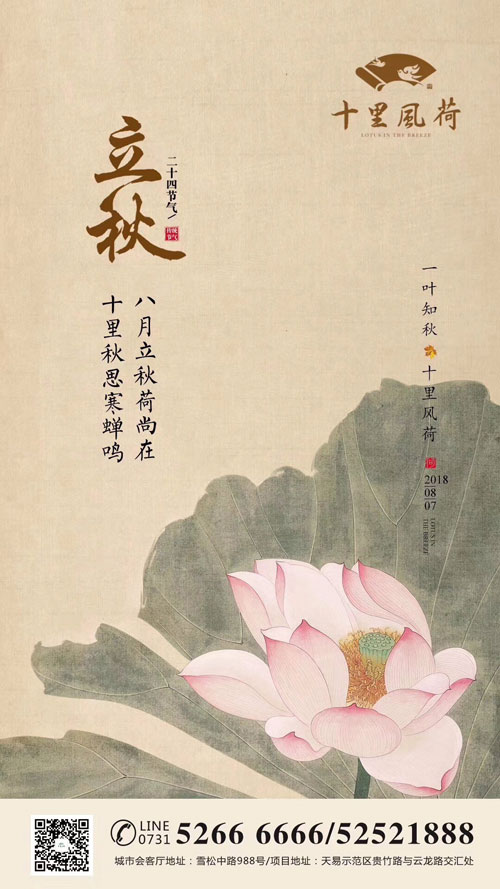 十里風荷
LOTUS IN THE BREEZE
立秋
二十四节气/
传统
节气
八月立秋荷尚在
十里秋思寒蝉鸣
一叶知秋
十里风荷
2018
08
07
LOTUS IN
THE BREEZE
LINE
0731
5266 6666/52521888
城市会客厅地址：雪松中路988号/项目地址：天易示范区贵竹路与云龙路交汇处